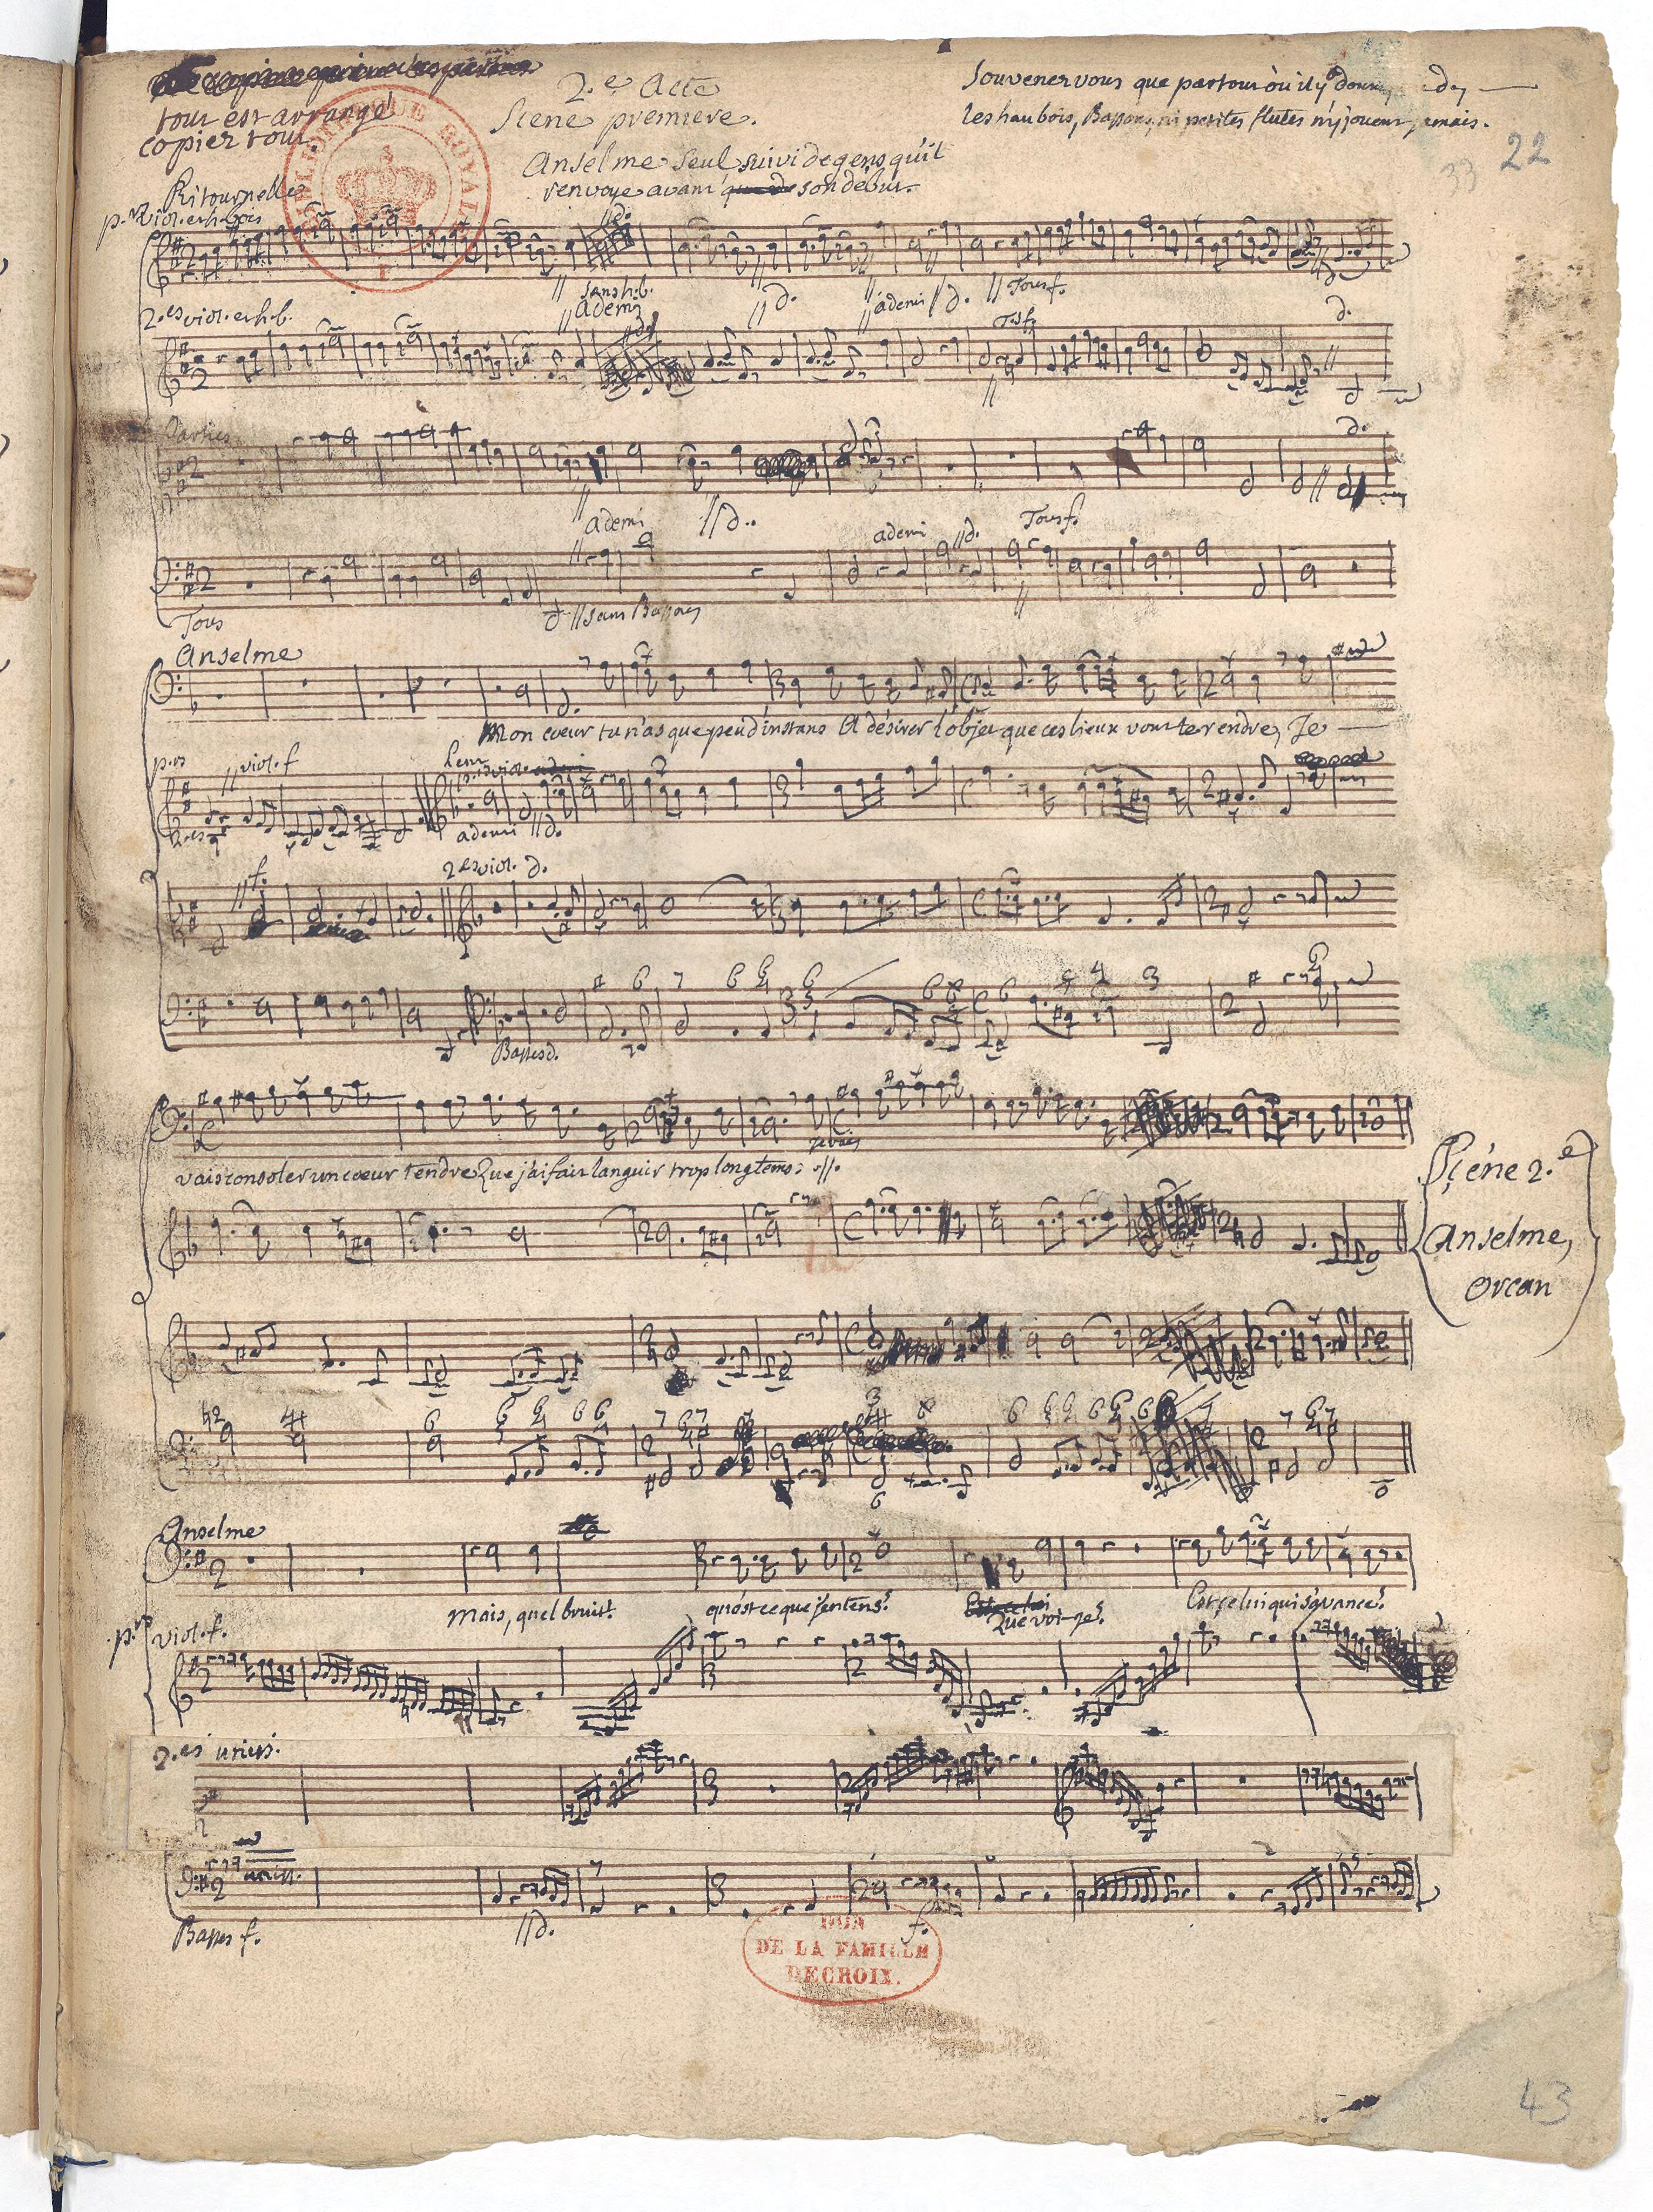 tout est arrangé
copier tout.
2.e Acte
Scene premiere.
Souvenez vous que partout où il y a doux
les hautbois, Bassons, ni petites flutes n'y jouent jamais.
22
33
Anselme seul suivi de gens qu'il
renvoye avant son début.
BIBLIOTHEQUE ROYALE
Ritournelle
p.rs viol. et h.bois
d.
sans h.b.
à demi
d.
à demi d.
Tous f.
d.
2.es viol. et h.b.
d.
T. f.
Parties
d.
à demi
d.
à demi
d.
Tous f.
Tous
sans Bassons
Anselme
Mon coeur tu n'as que peu d'instans A désirer l'objet que ces lieux vont te rendre, Je
p.rs
viol. f
Lent
p.rs viol.
2.es
à demi d.
f.
2.es viol. d.
Basses d.
je vais
vais consoler un coeur tendre Que j'ai fait languir trop longtems:
Scéne 2.e
Anselme,
Orcan
Anselme
Mais, quel bruit? qu'est ce que j'entens? Que voi-je? Est çe lui qui s'avance?
p.rs viol. f.
2.es uniss.
uniss.
Basses f.
d.
f.
DON
DE LA FAMILLE
DECROIX.
43